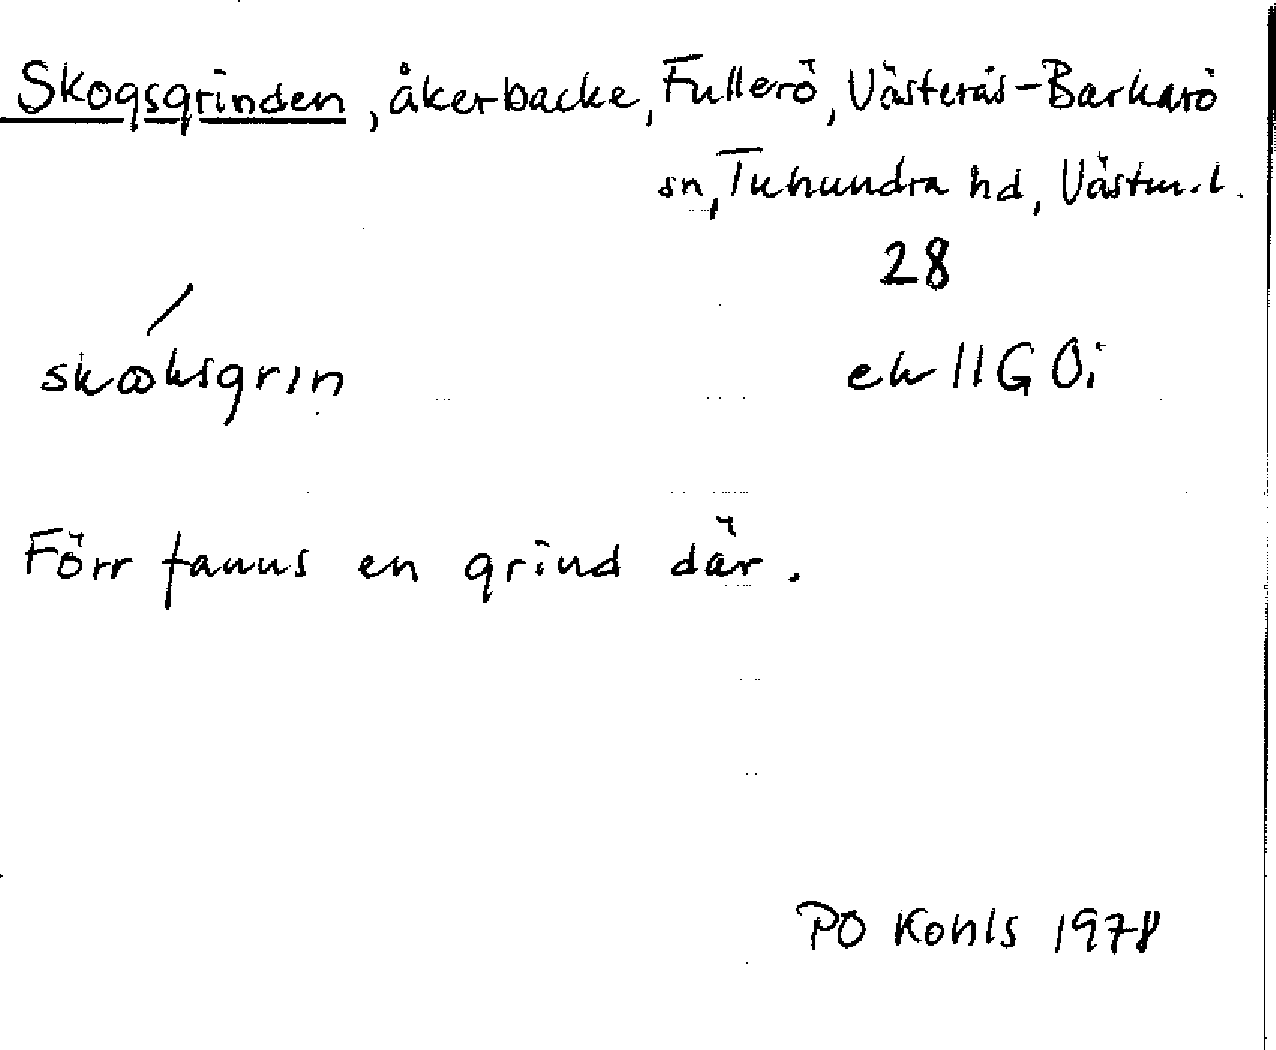 Skogsgrinden, åkerbacke, Fullerö, Västerås-Barkarö
sn, Tuhundra hd, Västm.l.
28
ek 11G 0i
Förr fanns en grind där.
PO Kohls 1978